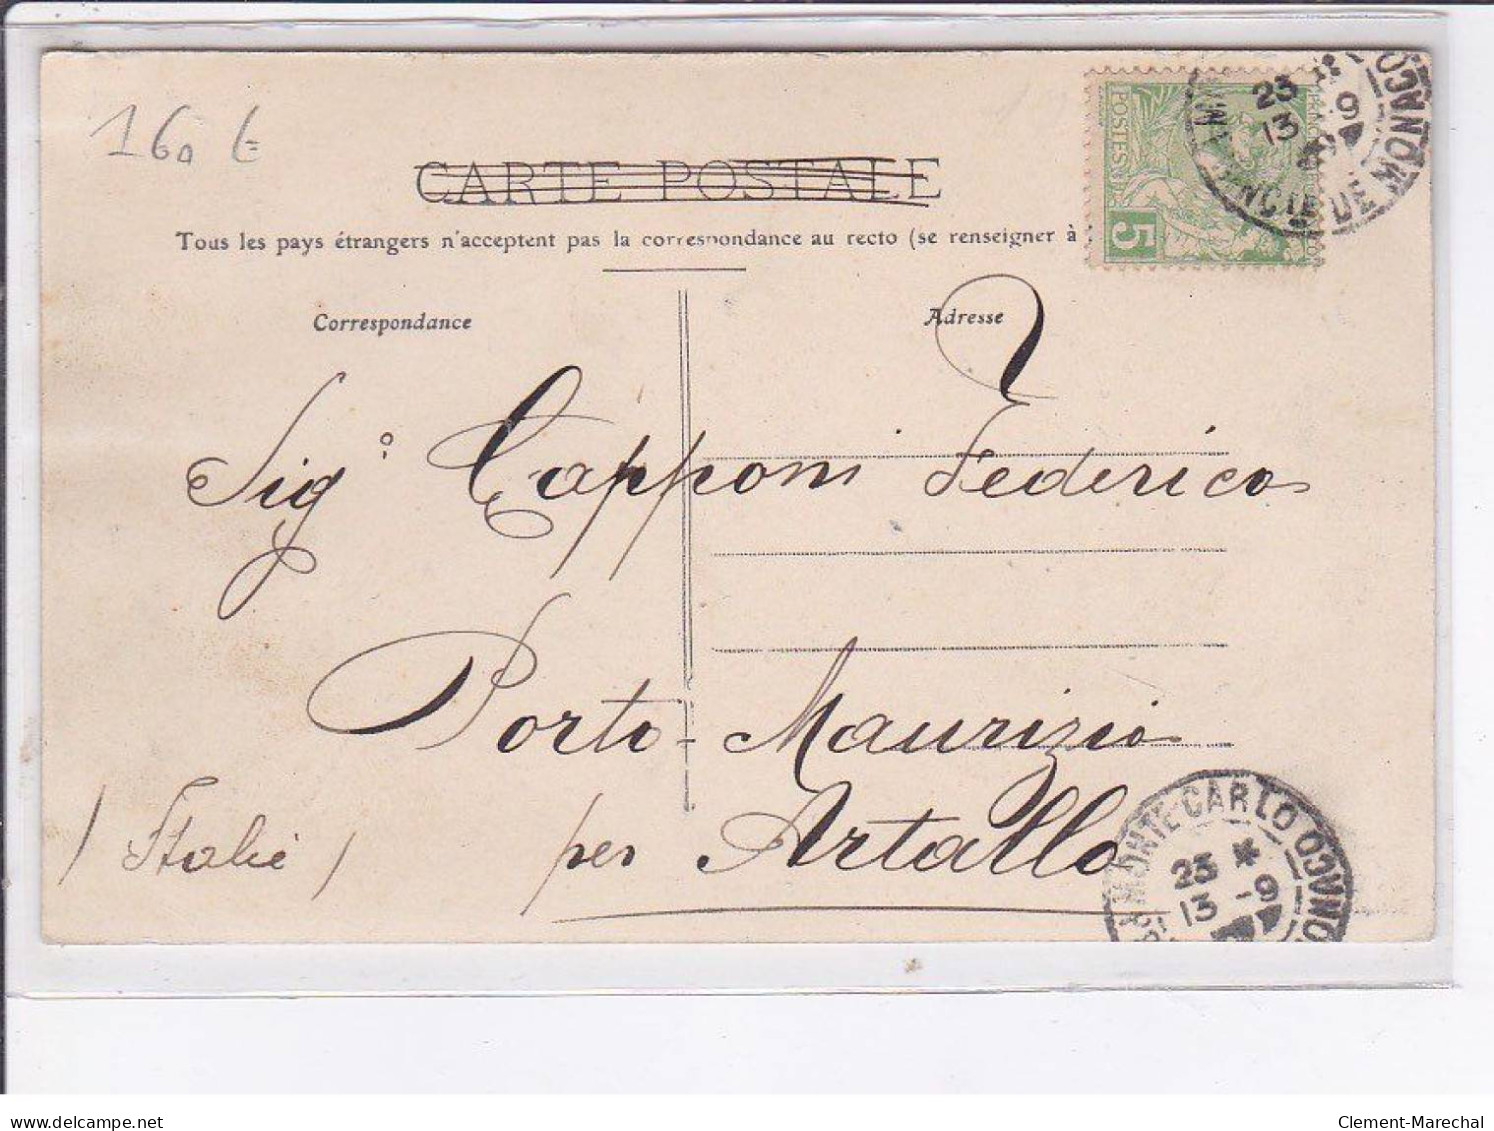 160 €
CARTE POSTALE
Tous les pays étrangers n'acceptent pas la correspondance au recto (se renseigner à
Correspondance
Adresse
POSTES
5
23
13 9
MONACO
Sig.° Capponi Federico
Porto-Maurizio
(Italie)
per Artallo
MONTE CARLO
MONACO
23 *
13 -9
delcampe.net
Clement-Marechal